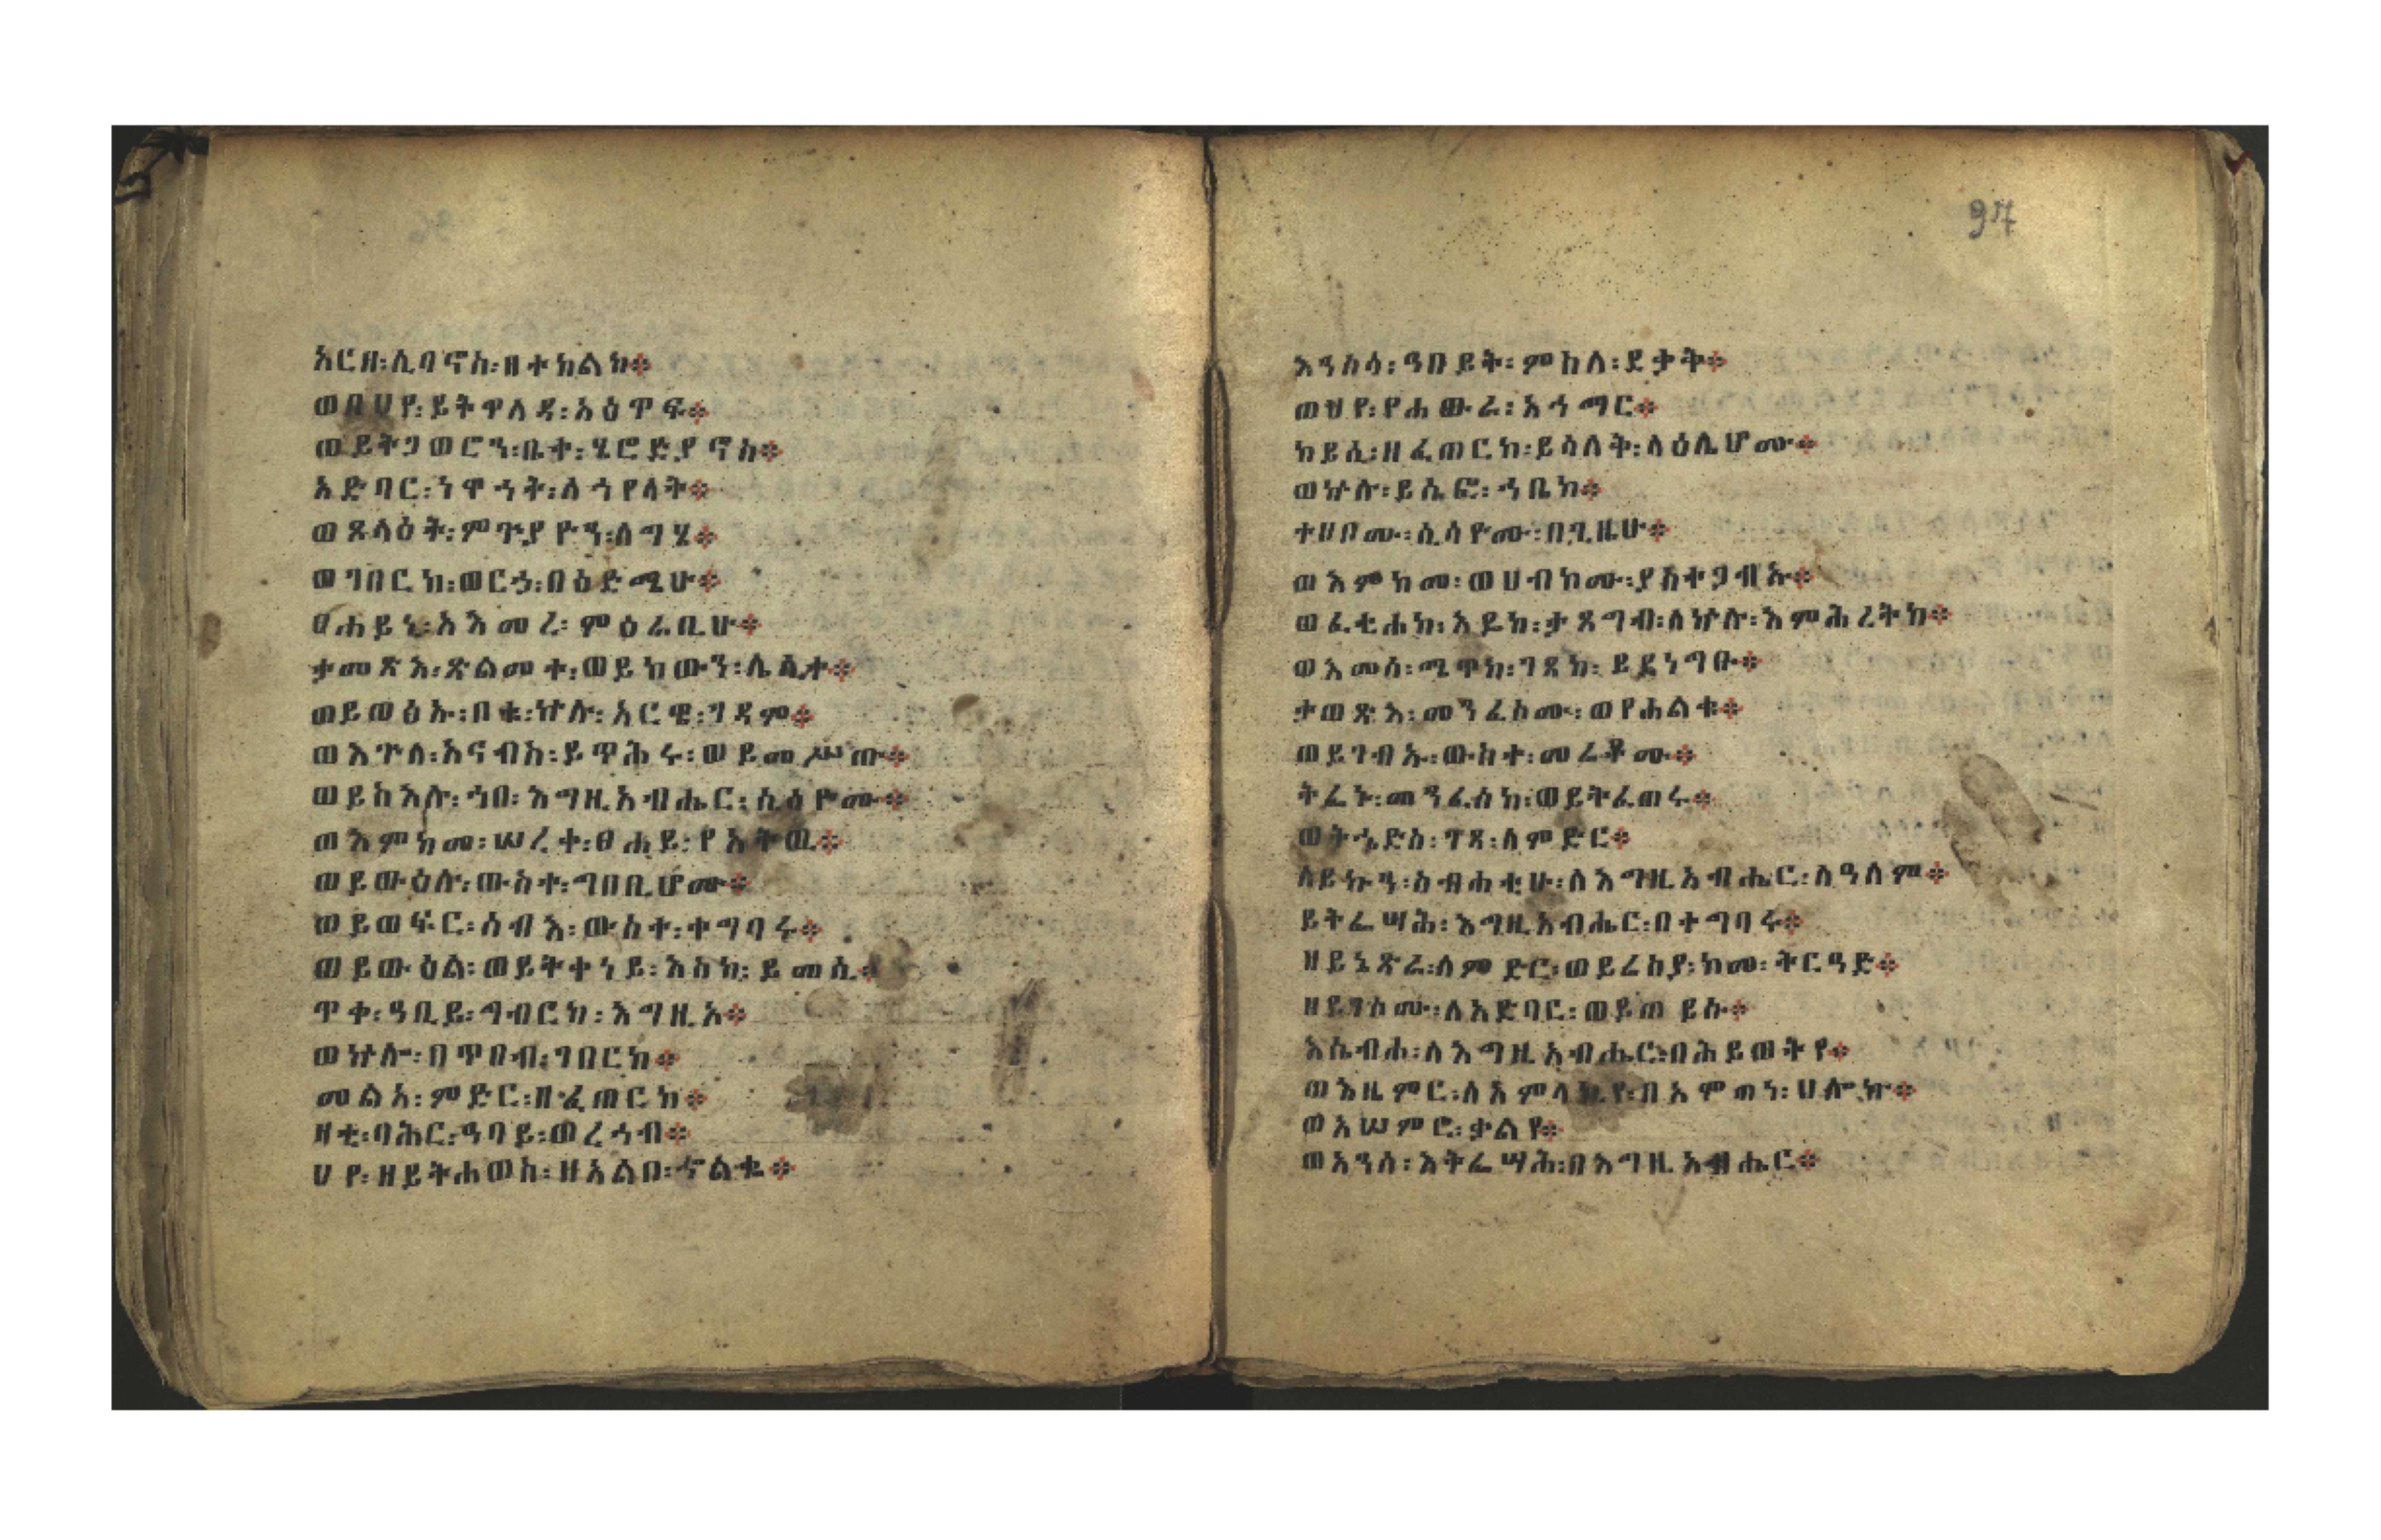 አርዘ፡ሊባኖስ፡ዘተከልከ።
ወበህየ፡ይትዋለዳ፡አዕዋፍ።
ወይትጋወሮን፡ቤተ፡ሄሮድያኖስ።
አድባር፡ነዋኅት፡ለኀየላት።
ወጸላዕት፡ምጕያዮን፡ለግሄ።
ወገበርከ፡ወርኅ፡በዕድሜሁ።
ፀሐይኒ፡አእመረ፡ምዕራቢሁ።
ታመጽእ፡ጽልመተ፡ወይከውን፡ሌሊተ።
ወይወዕኡ፡በቱ፡ኵሉ፡አርዌ፡ገዳም።
ወእጕለ፡አናብስ፡ይጥሕሩ፡ወይመሥጡ።
ወይስእሉ፡ኀበ፡እግዚአብሔር፡ሲሳዮሙ።
ወእምከመ፡ሠረቀ፡ፀሐይ፡የአትዉ።
ወይውዕሉ፡ውስተ፡ግበቢሆሙ።
ወይወፍር፡ሰብእ፡ውስተ፡ተግባሩ።
ወይውዕል፡ወይትቀነይ፡እስከ፡ይመሲ።
ጥቀ፡ዓቢይ፡ግብርከ፡እግዚአ።
ወኵሎ፡በጥበብ፡ገበርከ።
መልአ፡ምድር፡ዘፈጠርከ።
ዛቲ፡ባሕር፡ዓባይ፡ወረኀብ።
ህየ፡ዘይትሐወስ፡ዘአልቦ፡ኆልቈ።
97
እንስሳ፡ዓበይት፡ምስለ፡ደቃት።
ወህየ፡የሐውራ፡አኅማር።
ከይሲ፡ዘፈጠርከ፡ይሳለቅ፡ላዕሌሆሙ።
ወኵሉ፡ይሴፎ፡ኀቤከ።
ተሀቦሙ፡ሲሳዮሙ፡በጊዜሁ።
ወእምከመ፡ወሀብኮሙ፡ያስተጋብኡ።
ወፈቲሐከ፡እዴከ፡ታጸግብ፡ለኵሉ፡እምሕረትከ።
ወእመሰ፡ሜጥከ፡ገጸከ፡ይደነግፁ።
ታወጽእ፡መንፈሶሙ፡ወየሐልቁ።
ወይገብኡ፡ውስተ፡መሬቶሙ።
ትፌኑ፡መንፈሰከ፡ወይትፈጠሩ።
ወትሔድስ፡ገጸ፡ለምድር።
ለይኩን፡ስብሐቲሁ፡ለእግዚአብሔር፡ለዓለም።
ይትፌሣሕ፡እግዚአብሔር፡በተግባሩ።
ዘይኔጽራ፡ለምድር፡ወይሬስያ፡ከመ፡ትርዓድ።
ዘይገሶሙ፡ለአድባር፡ወይጠይሱ።
እሴብሖ፡ለእግዚአብሔር፡በሕይወትየ።
ወእዜምር፡ለአምላኪየ፡በአምጣነ፡ሀሎኩ።
ወአሠምሮ፡ቃልየ።
ወአንሰ፡እትፌሣሕ፡በእግዚአብሔር።